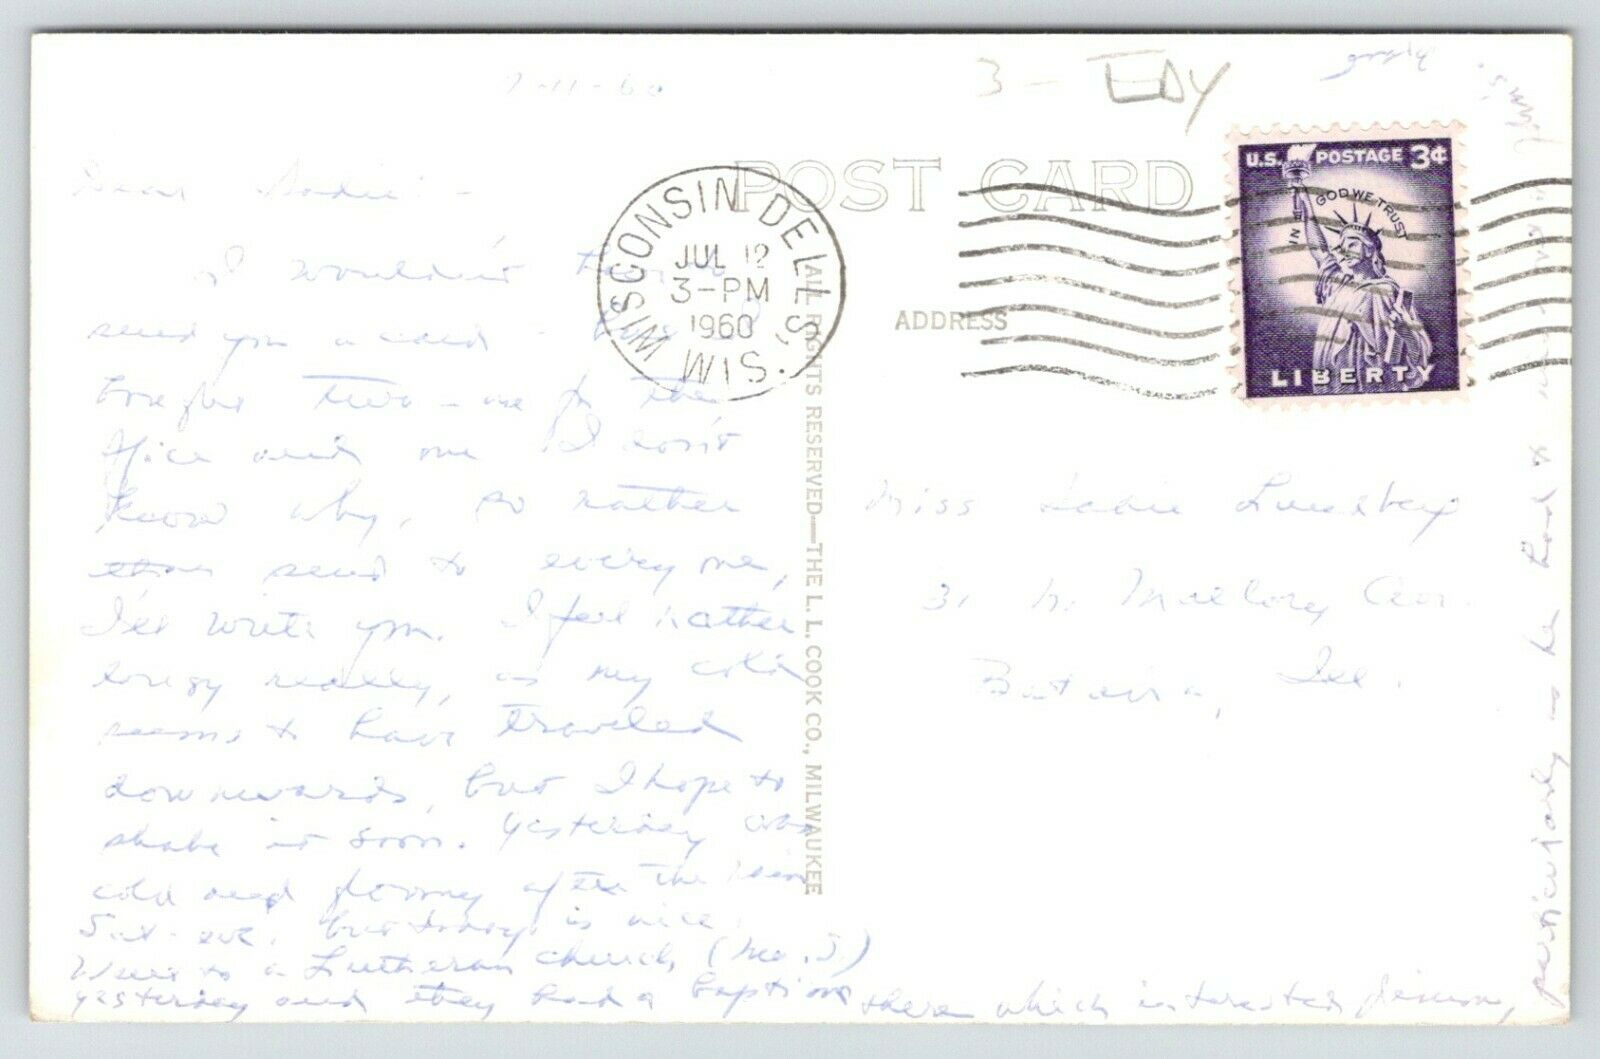 7-11-60
3 - EDY
POST CARD
U.S. POSTAGE 3¢
IN GOD WE TRUST
LIBERTY
WISCONSIN DELLS, WIS.
JUL 12
3-PM
1960
ADDRESS
ALL RIGHTS RESERVED—THE L. L. COOK CO., MILWAUKEE
Dear Sadie: -
I wouldn't
send you a card - but I
bought two - one for the
office and one I don't
know why, so rather
than send to everyone,
I'll write you. I feel rather
logy really, as my cold
seems to have traveled
downwards, but I hope to
shake it soon. Yesterday was
cold and gloomy after the rain
Sat. eve. but today is nice.
Went to a Lutheran church (Mo. S.)
yesterday and they had a baptism there which interested
particularly - he had
Miss Sadie Lundberg
31 N. Mallory Ave.
Batavia, Ill.